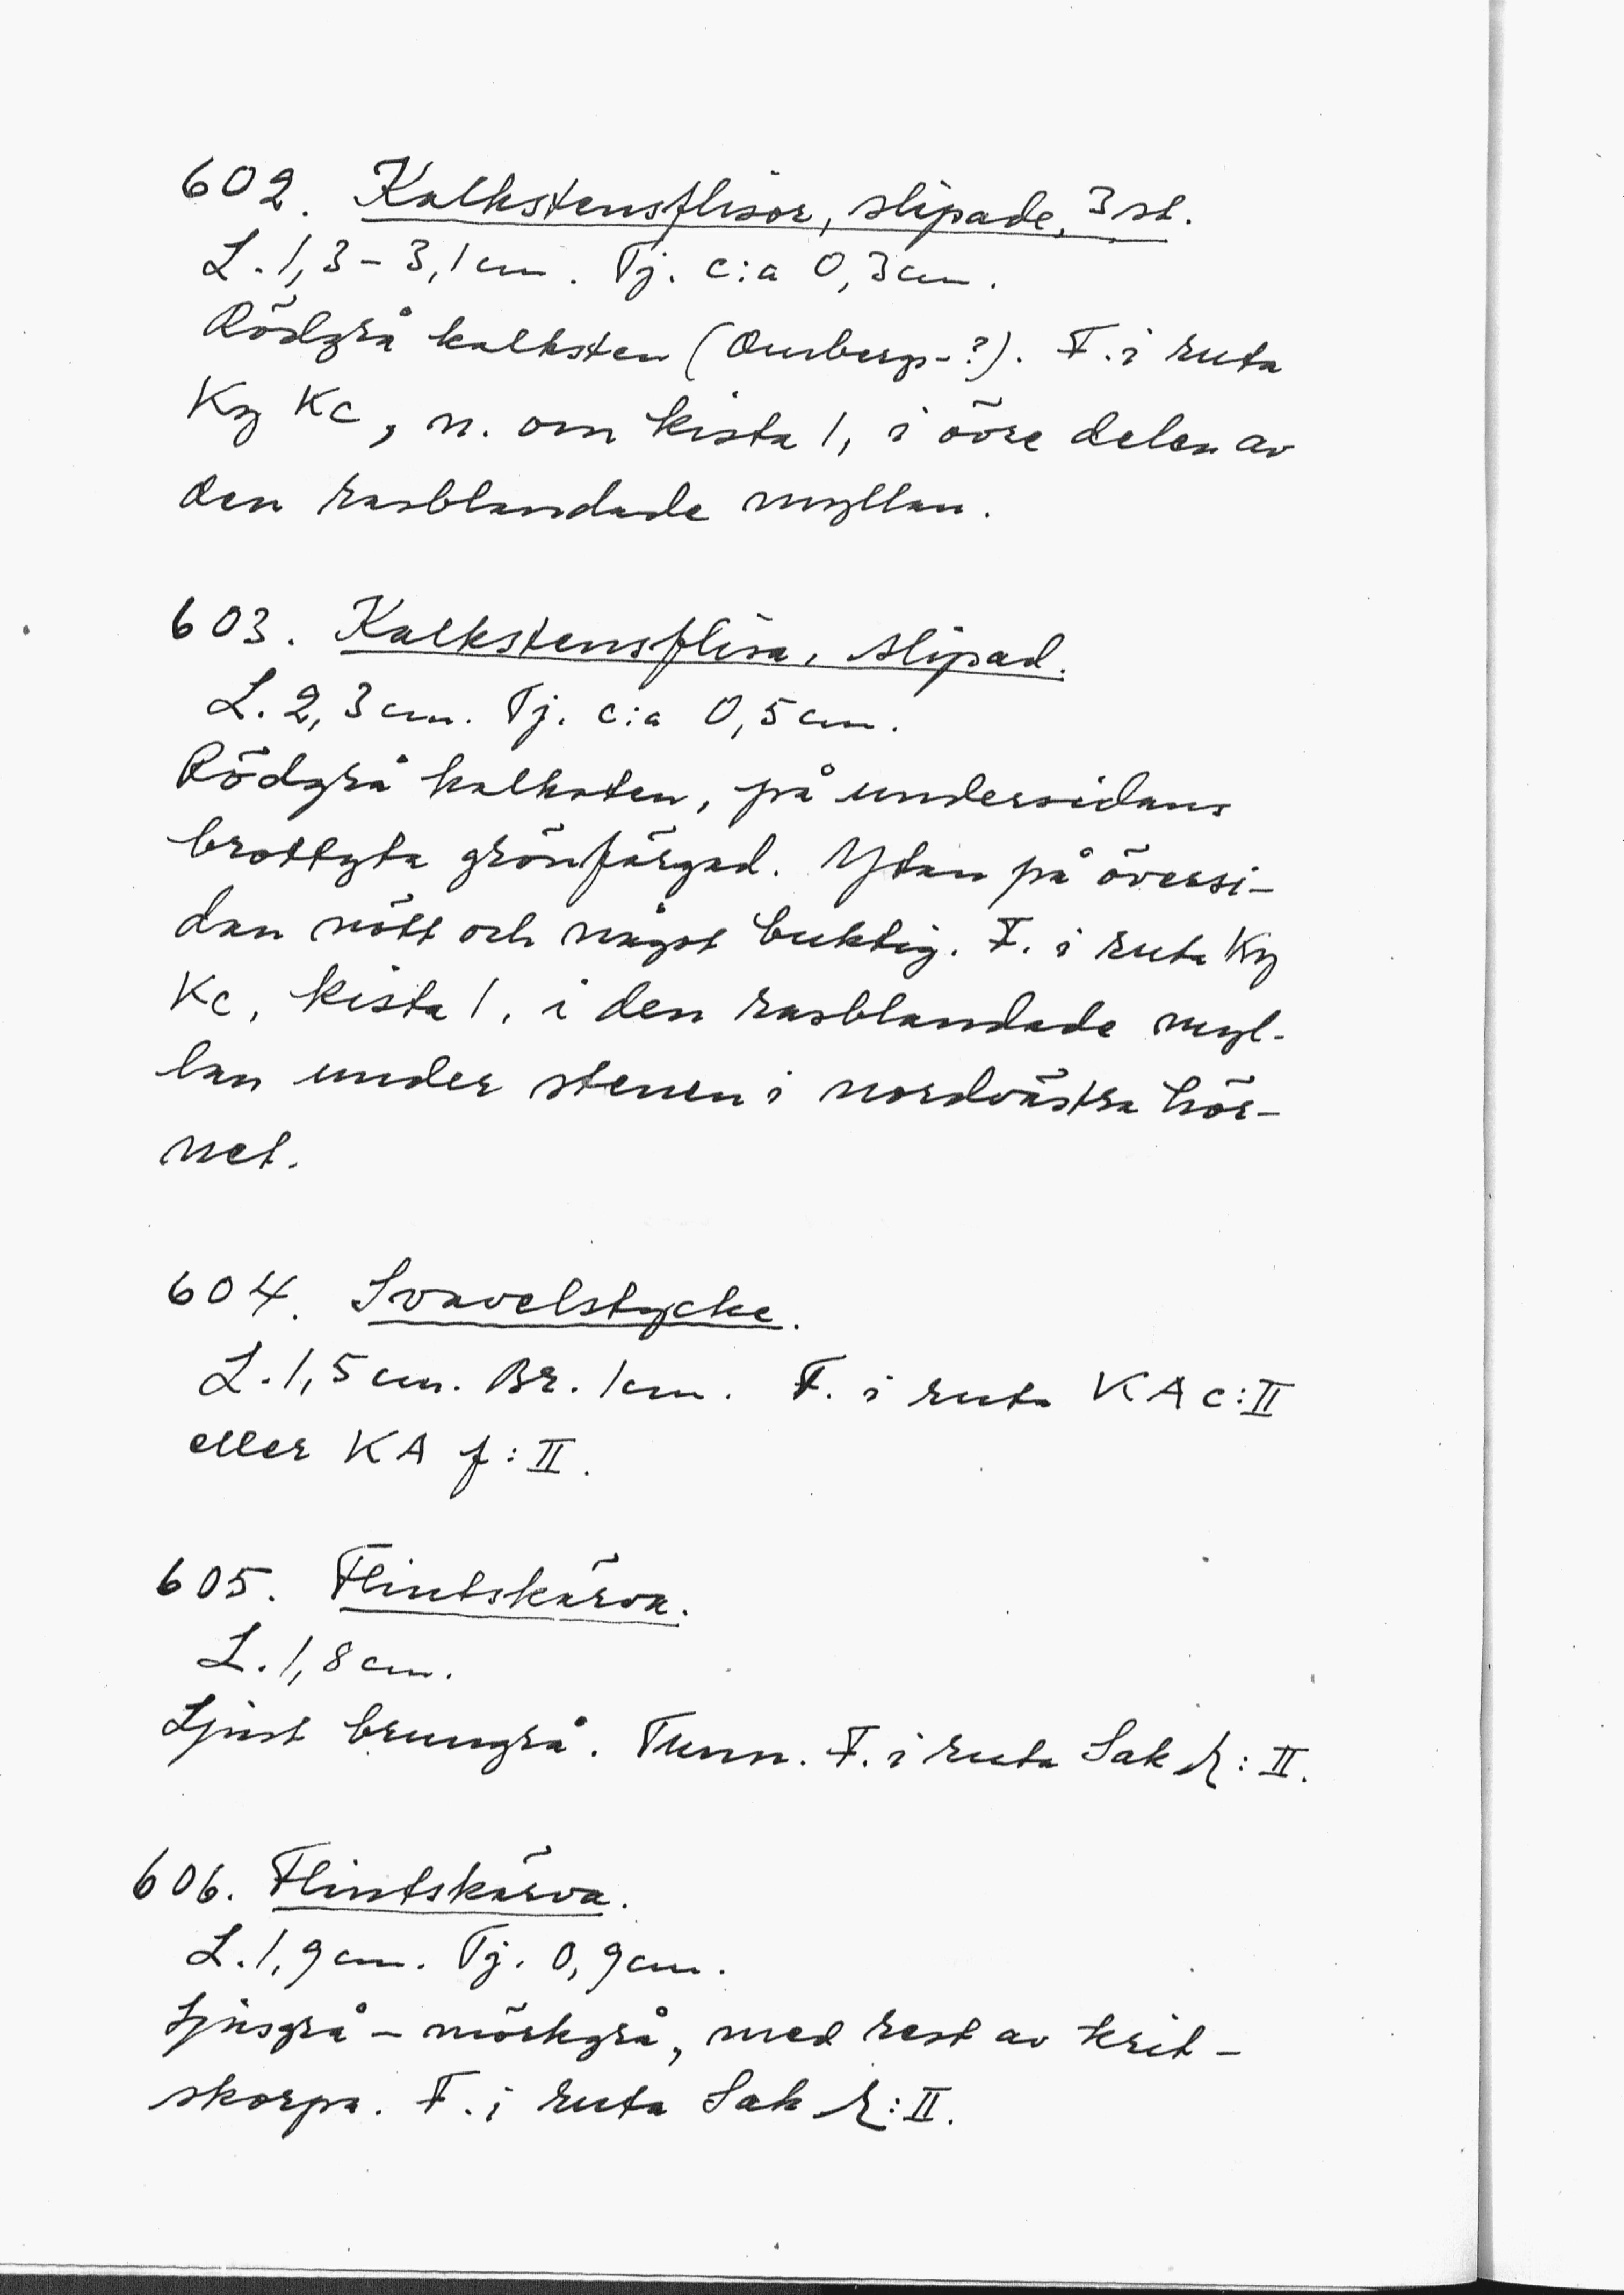 602. Kalkstensflisor, slipade, 3 st.
L. 1,3 – 3,1 cm. Tj. c:a 0,3 cm.
Rödgrå kalksten (Omberg-?). F. i ruta
Ky Kc, n. om kista 1, i övre delen av
den rasblandade myllan.
603. Kalkstensflisa, slipad.
L. 2,3 cm. Tj. c:a 0,5 cm.
Rödgrå kalksten, på undersidans
brottyta grönfärgad. Ytan på översi-
dan nött och något buktig. F. i ruta Ky
Kc, kista 1, i den rasblandade myl-
lan under stenen i nordvästra hör-
net.
604. Svavelstycke.
L. 1,5 cm. Br. 1 cm. F. i ruta KA c:II
eller KA f:II.
605. Flintskärva.
L. 1,8 cm.
Ljust brungrå. Tunn. F. i ruta Sak :II.
606. Flintskärva.
L. 1,9 cm. Tj. 0,9 cm.
Ljusgrå – mörkgrå, med rest av krit-
skorpa. F. i ruta Sak :II.